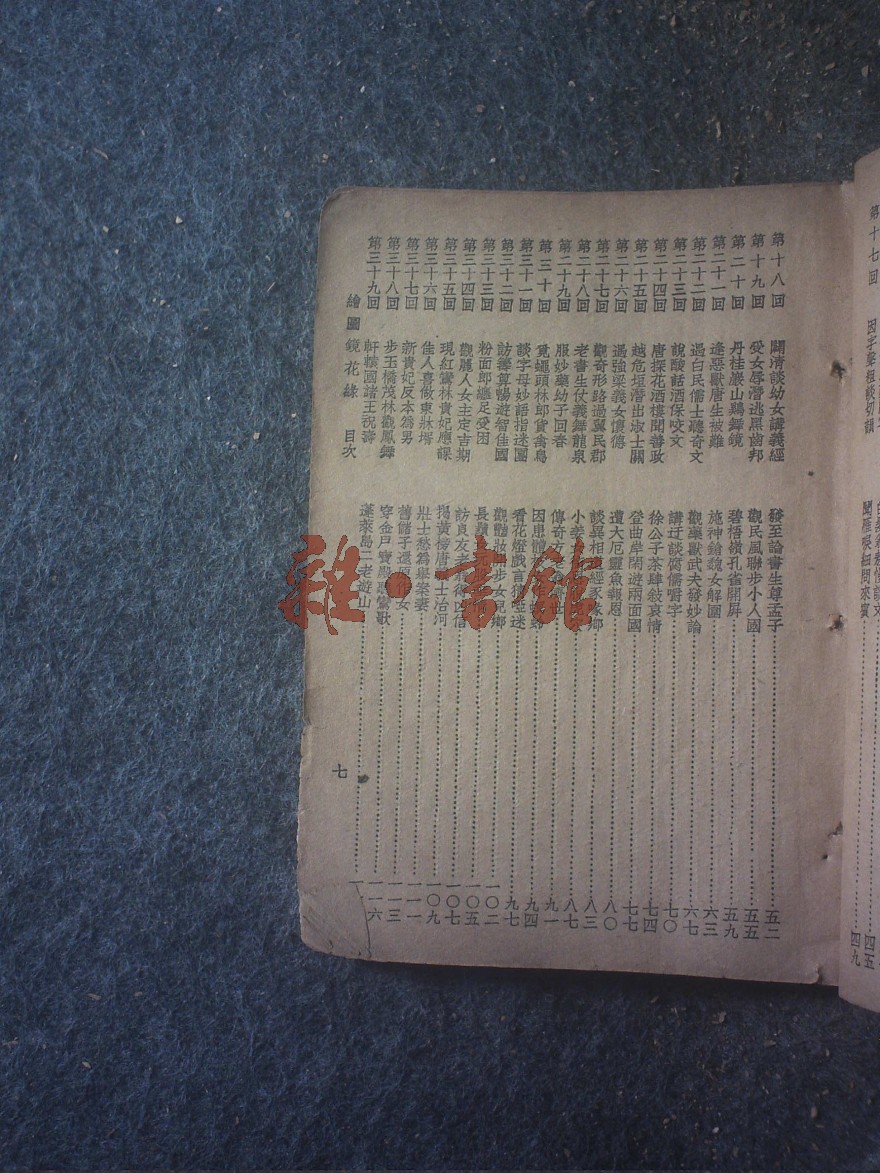 第十七回
第十八回 聞清談幼女講義經 發至論書生尊孟子 五二
第十九回 受女辱潛逃黑齒邦 觀民風聯步小人國 五五
第二十回 丹桂巖山鷄舞鏡 碧梧嶺孔雀開屏 五九
第二十一回 逢惡獸唐生被難 施神鎗魏女解圍 六三
第二十二回 遇白民儒士聽奇文 觀藥獸武夫發妙論 六七
第二十三回 說酸話酒保咬文 講迂談腐儒嚼字 七〇
第二十四回 唐探花酒樓聞善政 徐公子茶肆敍衷情 七四
第二十五回 越危垣潛出淑士關 登曲岸閑遊兩面國 七七
第二十六回 遇強梁義女懷德 遭大厄靈魚報恩 八〇
第二十七回 觀奇形路過翼民郡 談異相 豕喙鄉 八三
第二十八回 老書生仗義舞龍泉 小 八七
第二十九回 服妙藥幼子回春 傳奇方 世 九一
第三十回 覓蠅頭林郎貨禽鳥 因患體 九四
第三十一回 談字母妙語指迷團 看花燈戲言猜啞迷 九七
第三十二回 訪籌算暢遊智佳國 觀豔妝 步女兒鄉 一〇二
第三十三回 粉面郎纏足受困 長鬚 一〇五
第三十四回 觀麗人女主定吉期 訪良友老 凶信 一〇七
第三十五回 現紅鸞林貴妃應課 揭黃榜唐 士治河 一〇九
第三十六回 佳人喜做東牀壻 壯士愁爲舉案妻 一一一
第三十七回 新貴妃反本爲男 舊諸子還原作女 一一三
第三十八回 步玉橋茂林觀鳳舞 穿金戶寶殿聽鸞歌 一一六
第三十九回 軒轅國諸王祝壽 蓬萊島二老遊山 一
繪圖鏡花緣 目次
七
雜·書館